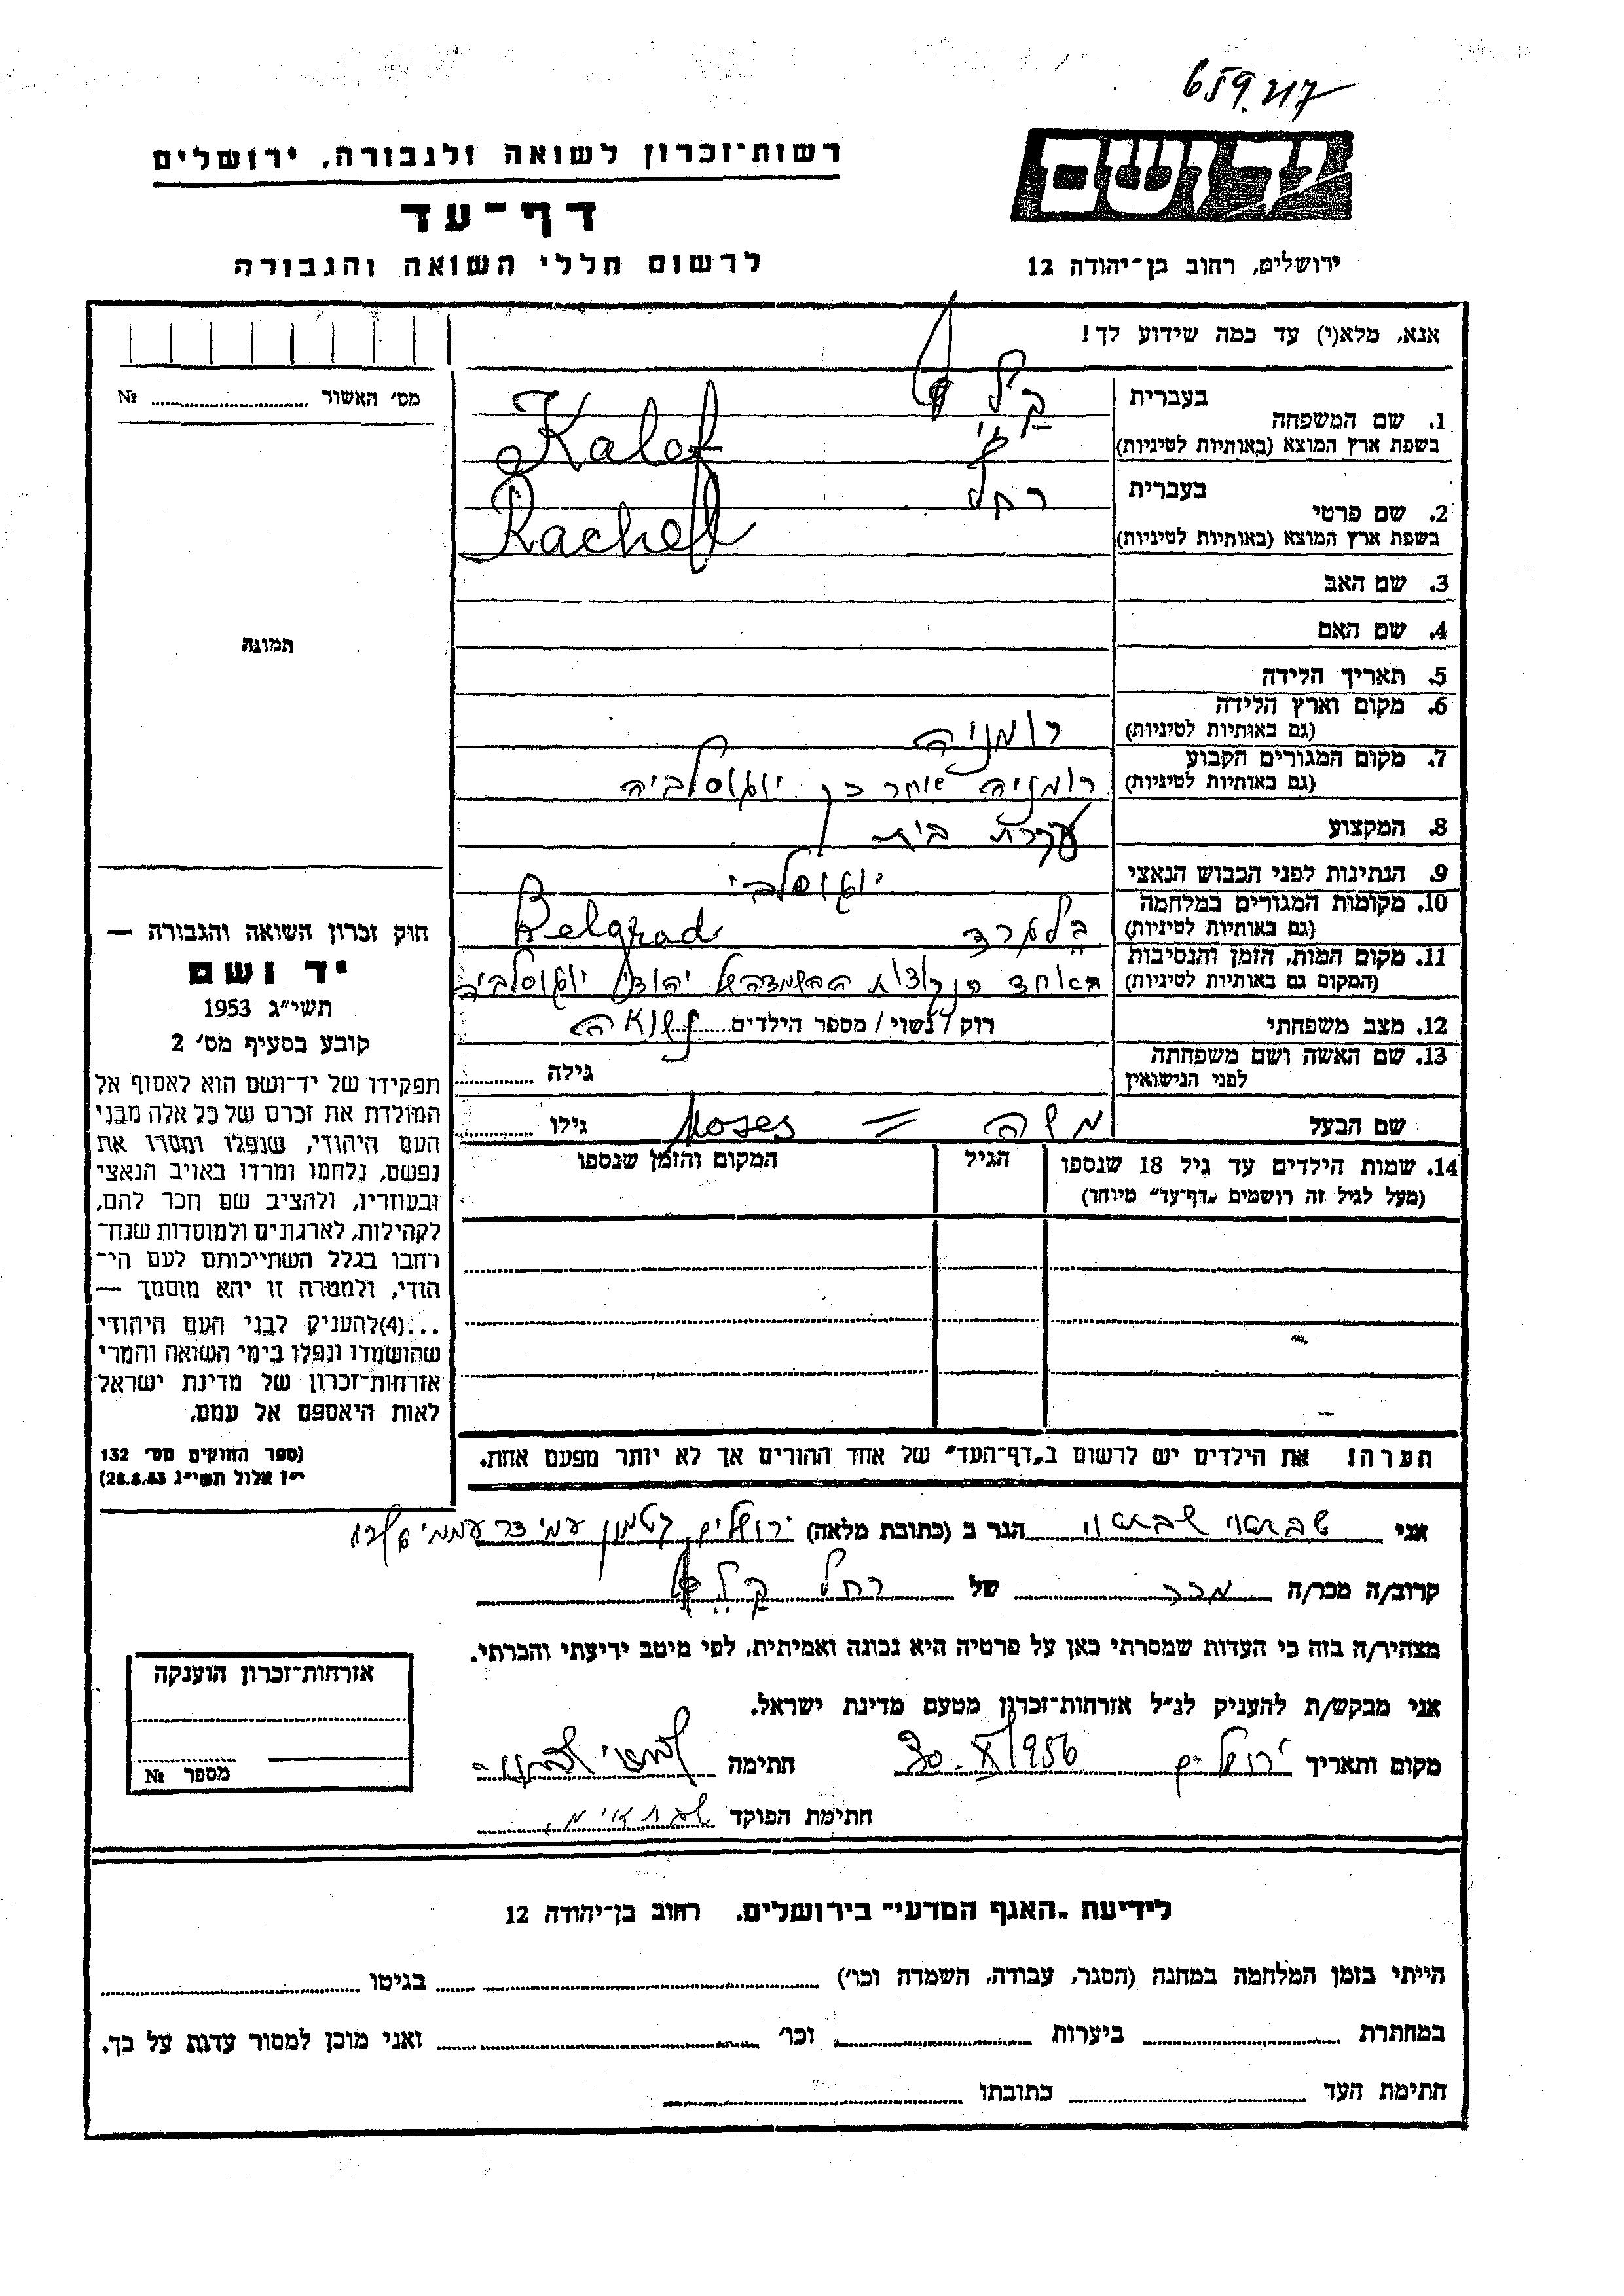 659.217
יד ושם
ירושלים, רחוב בן־יהודה 12
רשות־זכרון לשואה ולגבורה, ירושלים
דף־עד
לרשום חללי השואה והגבורה
אנא, מלא(י) עד כמה שידוע לך!
מס׳ האשור ........ №
תמונה
1. שם המשפחה בעברית
בשפת ארץ המוצא (באותיות לטיניות) Kalef
2. שם פרטי בעברית רחל
בשפת ארץ המוצא (באותיות לטיניות) Rachel
3. שם האב
4. שם האם
5. תאריך הלידה
6. מקום וארץ הלידה (גם באותיות לטיניות) רומניה
7. מקום המגורים הקבוע (גם באותיות לטיניות) רומניה אחר כך יוגוסלביה
8. המקצוע עקרת בית
9. הנתינות לפני הכבוש הנאצי יוגוסלבי
10. מקומות המגורים במלחמה (גם באותיות לטיניות) בלגרד Belgrad
11. מקום המות, הזמן והנסיבות (המקום גם באותיות לטיניות) באחד הנקודות ההשמדה של יהודי יוגוסלביה
12. מצב משפחתי רוק / נשוי / מספר הילדים נשואה
13. שם האשה ושם משפחתה לפני הנישואין גילה
שם הבעל משה = Moses גילו
14. שמות הילדים עד גיל 18 שנספו (מעל לגיל זה רושמים „דף־עד״ מיוחד) הגיל המקום והזמן שנספו
הערה! את הילדים יש לרשום ב„דף־העד״ של אחד ההורים אך לא יותר מפעם אחת.
חוק זכרון השואה והגבורה —
יד ושם
תשי״ג 1953
קובע בסעיף מס׳ 2
תפקידו של יד־ושם הוא לאסוף אל
המולדת את זכרם של כל אלה מבני
העם היהודי, שנפלו ומסרו את
נפשם, נלחמו ומרדו באויב הנאצי
ובעוזריו, ולהציב שם וזכר להם,
לקהילות, לארגונים ולמוסדות שנח־
רבו בגלל השתייכותם לעם הי־
הודי, ולמטרה זו יהא מוסמך —
...(4)להעניק לבני העם היהודי
שהושמדו ונפלו בימי השואה והמרי
אזרחות־זכרון של מדינת ישראל
לאות היאספם אל עמם.
(ספר החוקים מס׳ 132
י״ז אלול תשי״ג 28.8.53)
אני שבתאי שבתאי הגר ב (כתובת מלאה) ירושלים, קטמון
קרוב/ה מכר/ה מכר של רחל
מצהיר/ה בזה כי העדות שמסרתי כאן על פרטיה היא נכונה ואמיתית, לפי מיטב ידיעתי והכרתי.
אני מבקש/ת להעניק לנ״ל אזרחות־זכרון מטעם מדינת ישראל.
מקום ותאריך ירושלים 30.XI 1956 חתימה
חתימת הפוקד
אזרחות־זכרון הוענקה
מספר №
לידיעת „האגף המדעי״ בירושלים, רחוב בן־יהודה 12
הייתי בזמן המלחמה במחנה (הסגר, עבודה, השמדה וכו׳) בגיטו
במחתרת ביערות וכו׳ ואני מוכן למסור עדות על כך.
חתימת העד כתובתו